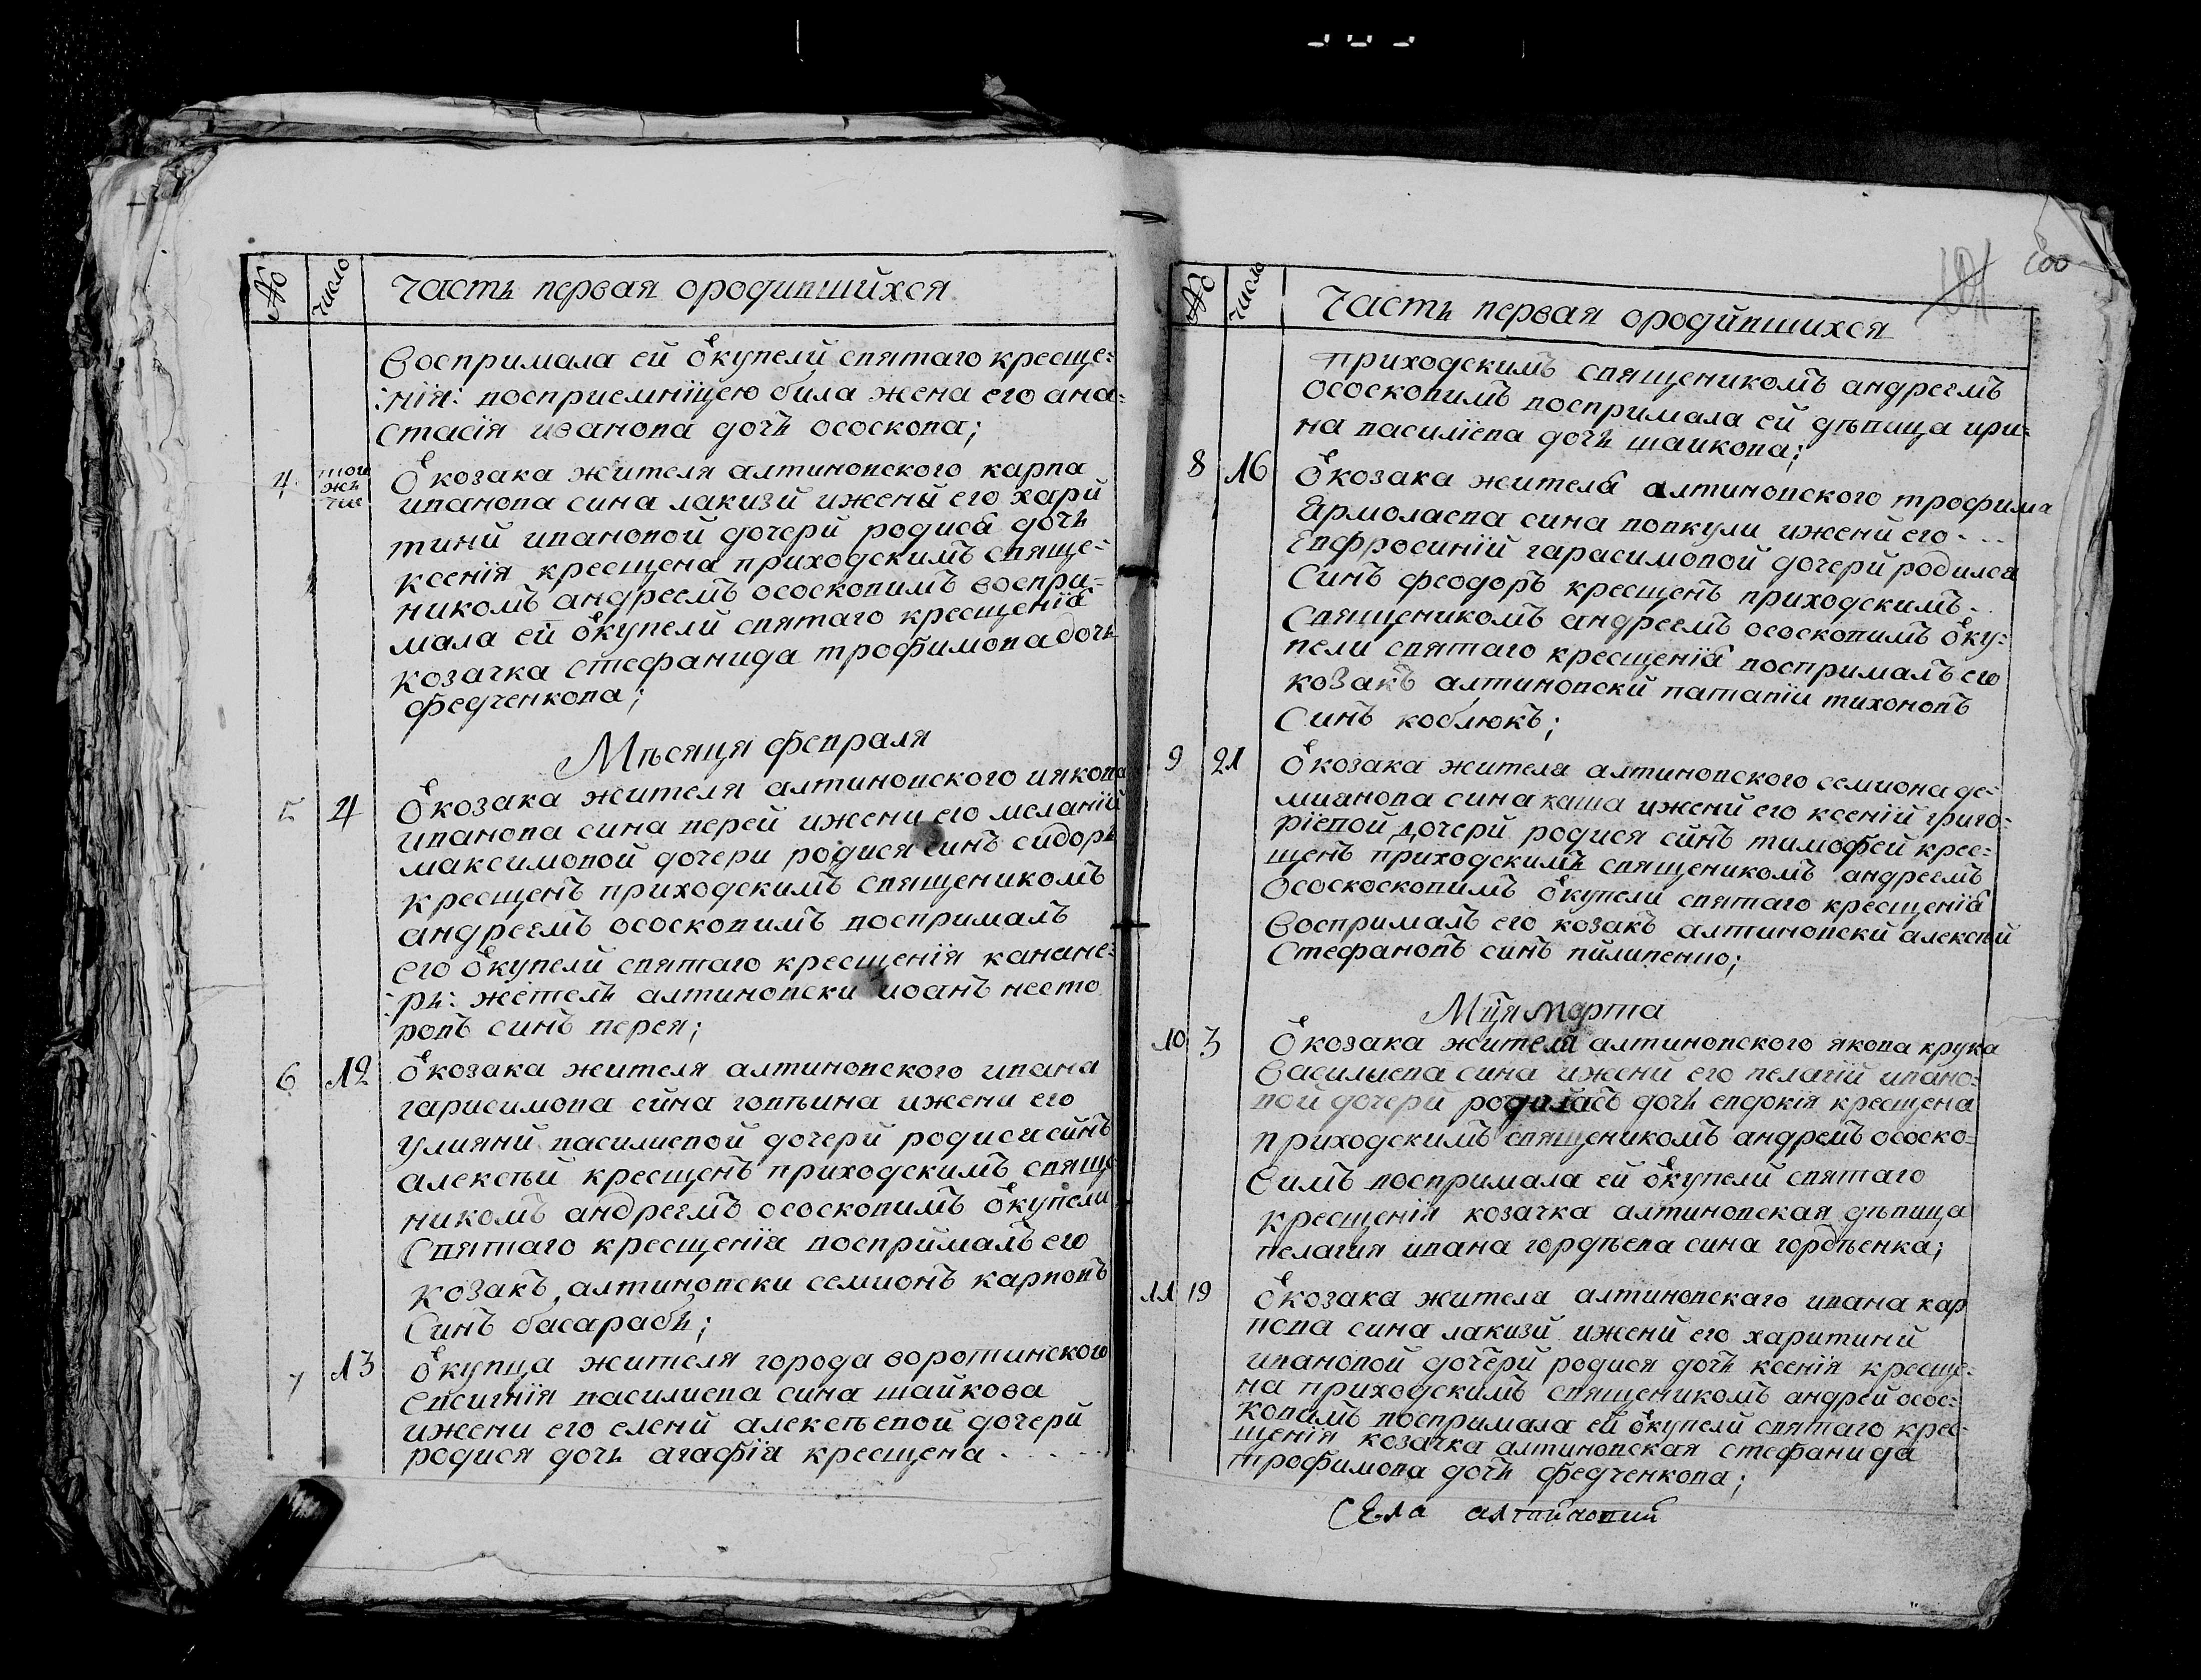 № число Часть первая ородившийхся
воспримала ей ѿкупели святаго кресще:
:нія: восприемніцею била жена его ана:
стасія иванова дочь ососкова;
4 той же чис
ѿкозака жителя алтиновского карпа
иванова сина лакизи ижени его хари
тини ивановой дочери родися дочь
ксенія кресщена приходскимъ свяще:
никомъ андреемъ ососковимъ воспри:
мала ей ѿкупели святаго кресщенія
козачка стефанида трофимова дочь
федченкова;
Мѣсяця февраля
5 4 ѿкозака жителя алтиновского иякова
иванова сина верей ижени его меланій
максимовой дочери родися синъ сидоръ
кресщенъ приходскимъ священикомъ
андреемъ ососковимъ воспрималъ
его ѿкупели святаго кресщенія канане:
:рь: житель алтиновски иоанъ несто
ровъ синъ верея;
6 12 ѿкозака жителя алтиновского ивана
гарисимова сина говѣина ижени его
улияни василиевой дочери родися синъ
алексѣй кресщенъ приходскимъ свяще
никомъ андреемъ ососковимъ ѿкупели
святаго кресщенія воспрималъ его
козакъ алтиновски семионъ карповъ
синъ басарабъ;
7 13 ѿкупца жителя города воротинского
евсигнія василиева сина шайкова
ижени его елени алексѣевой дочери
родися дочь агафія кресщена
№ число Часть первая ородившихся
200
приходскимъ священикомъ андреемъ
ососковимъ воспримала ей дѣвица ири:
на василіева дочь шаикова;
8 16 ѿкозака жителя алтиновского трофима
Ярмолаева сина вовкули ижени его
Евфросиній гарасимовой дочери родился
синъ феодоръ кресщенъ приходскимъ
священикомъ андреемъ ососковимъ ѿку:
пели святаго кресщенія воспрималъ его
козакъ алтиновски патапій тихоновъ
синъ коблюкъ;
9 21 ѿкозака жителя алтиновского семиона де:
мианова сина каша ижени его ксеній григо:
ріевой дочери родися синъ тимофей крес:
щенъ приходскимъ священикомъ андреемъ
ососкосковимъ ѿкупели святаго кресщенія
воспрималъ его козакъ алтиновски алексѣй
стефановъ синъ пилипенио;
Мця марта
10 3 ѿкозака жителя алтиновского якова крука
василиева сина ижени его пелагій ивано:
вой дочери родилась дочь евдокія кресщена
приходскимъ священикомъ андреиъ ососко:
вимъ воспримала ей ѿкупели святаго
кресщенія козачка алтиновская дѣвица
пелагия ивана гордѣева сина гордѣенка;
11 19 ѿкозака жителя алтиновскаго ивана кар
пова сина лакизи ижени его харитини
ивановой дочери родися дочь ксенія кресще:
на приходскимъ священикомъ андрей осос:
ковимъ воспримала ей ѿкупели святаго крес:
щенія козачка алтиновская стефанида
трофимова дочь федченкова;
Села алтиновки